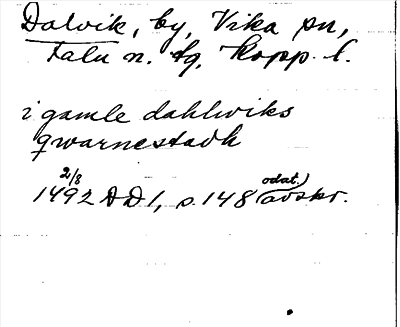 Dalvik, by, Vika sn,
Falu n. tg. Kopp. l.
i gamle dahlwiks
qwarnestadh
2/8 odat.)
1492 DD 1, s. 148 (avskr.